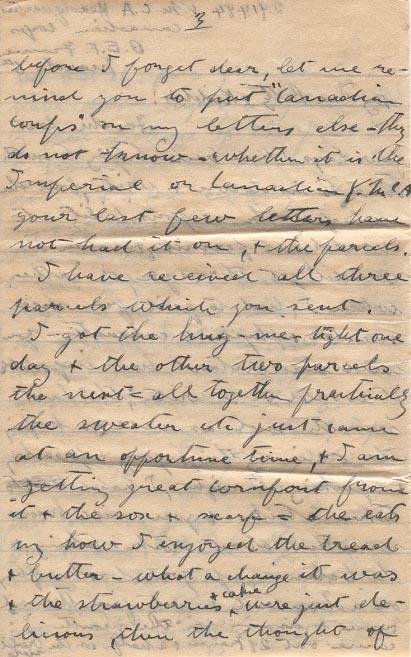 3
before I forget dear, let me re-
mind you to put "Canadian
Corps" on my letters else - they
do not know - whether it is the
Imperial or Canadian Y.M.C.A
your last few letters have
not had it on, & the parcels.
I have received all three
parcels which you sent.
I got the hug-me-tight one
day & the other two parcels
the next = all together practically
the sweater etc just came
at an opportune time, & I am
getting great comfort from
it & the sox & scarf = the eats
my how I enjoyed the bread
& butter - what a change it was
& the strawberries & cake were just de-
licious, then the thought of